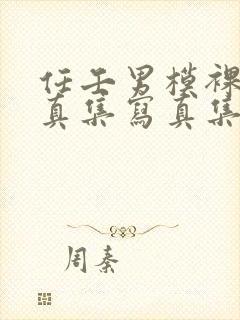 任壬男模裸
真集寫真集
周秦